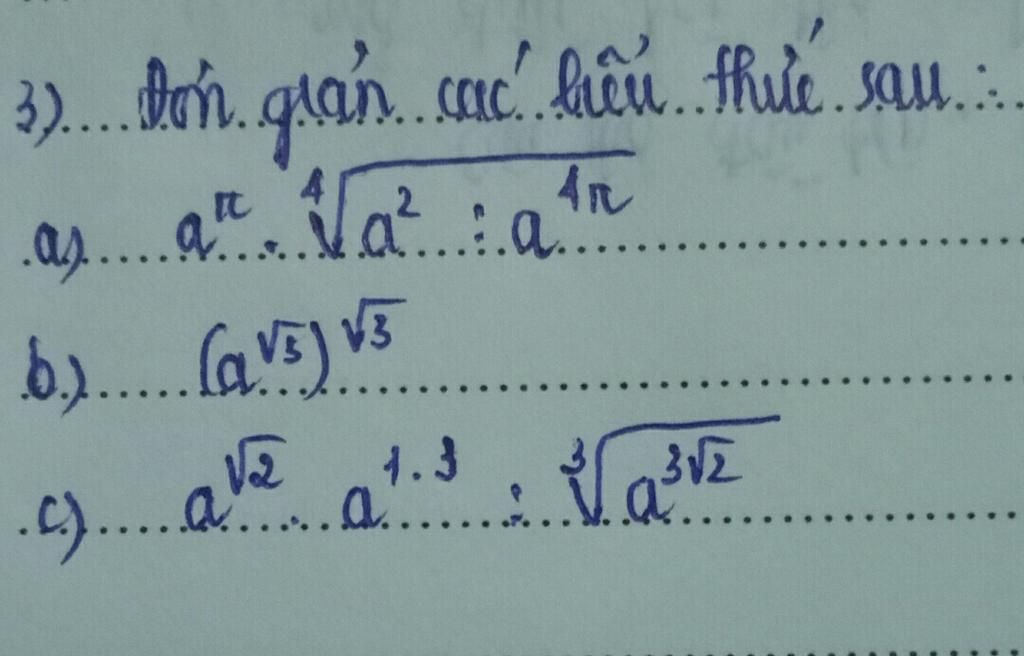 3) Đơn giản các biểu thức sau :
a) a^π . ∜(a² : a^(4π))
b) (a^√3)^√3
c) a^√2 . a^(1.3) : ∛(a^(3√2))